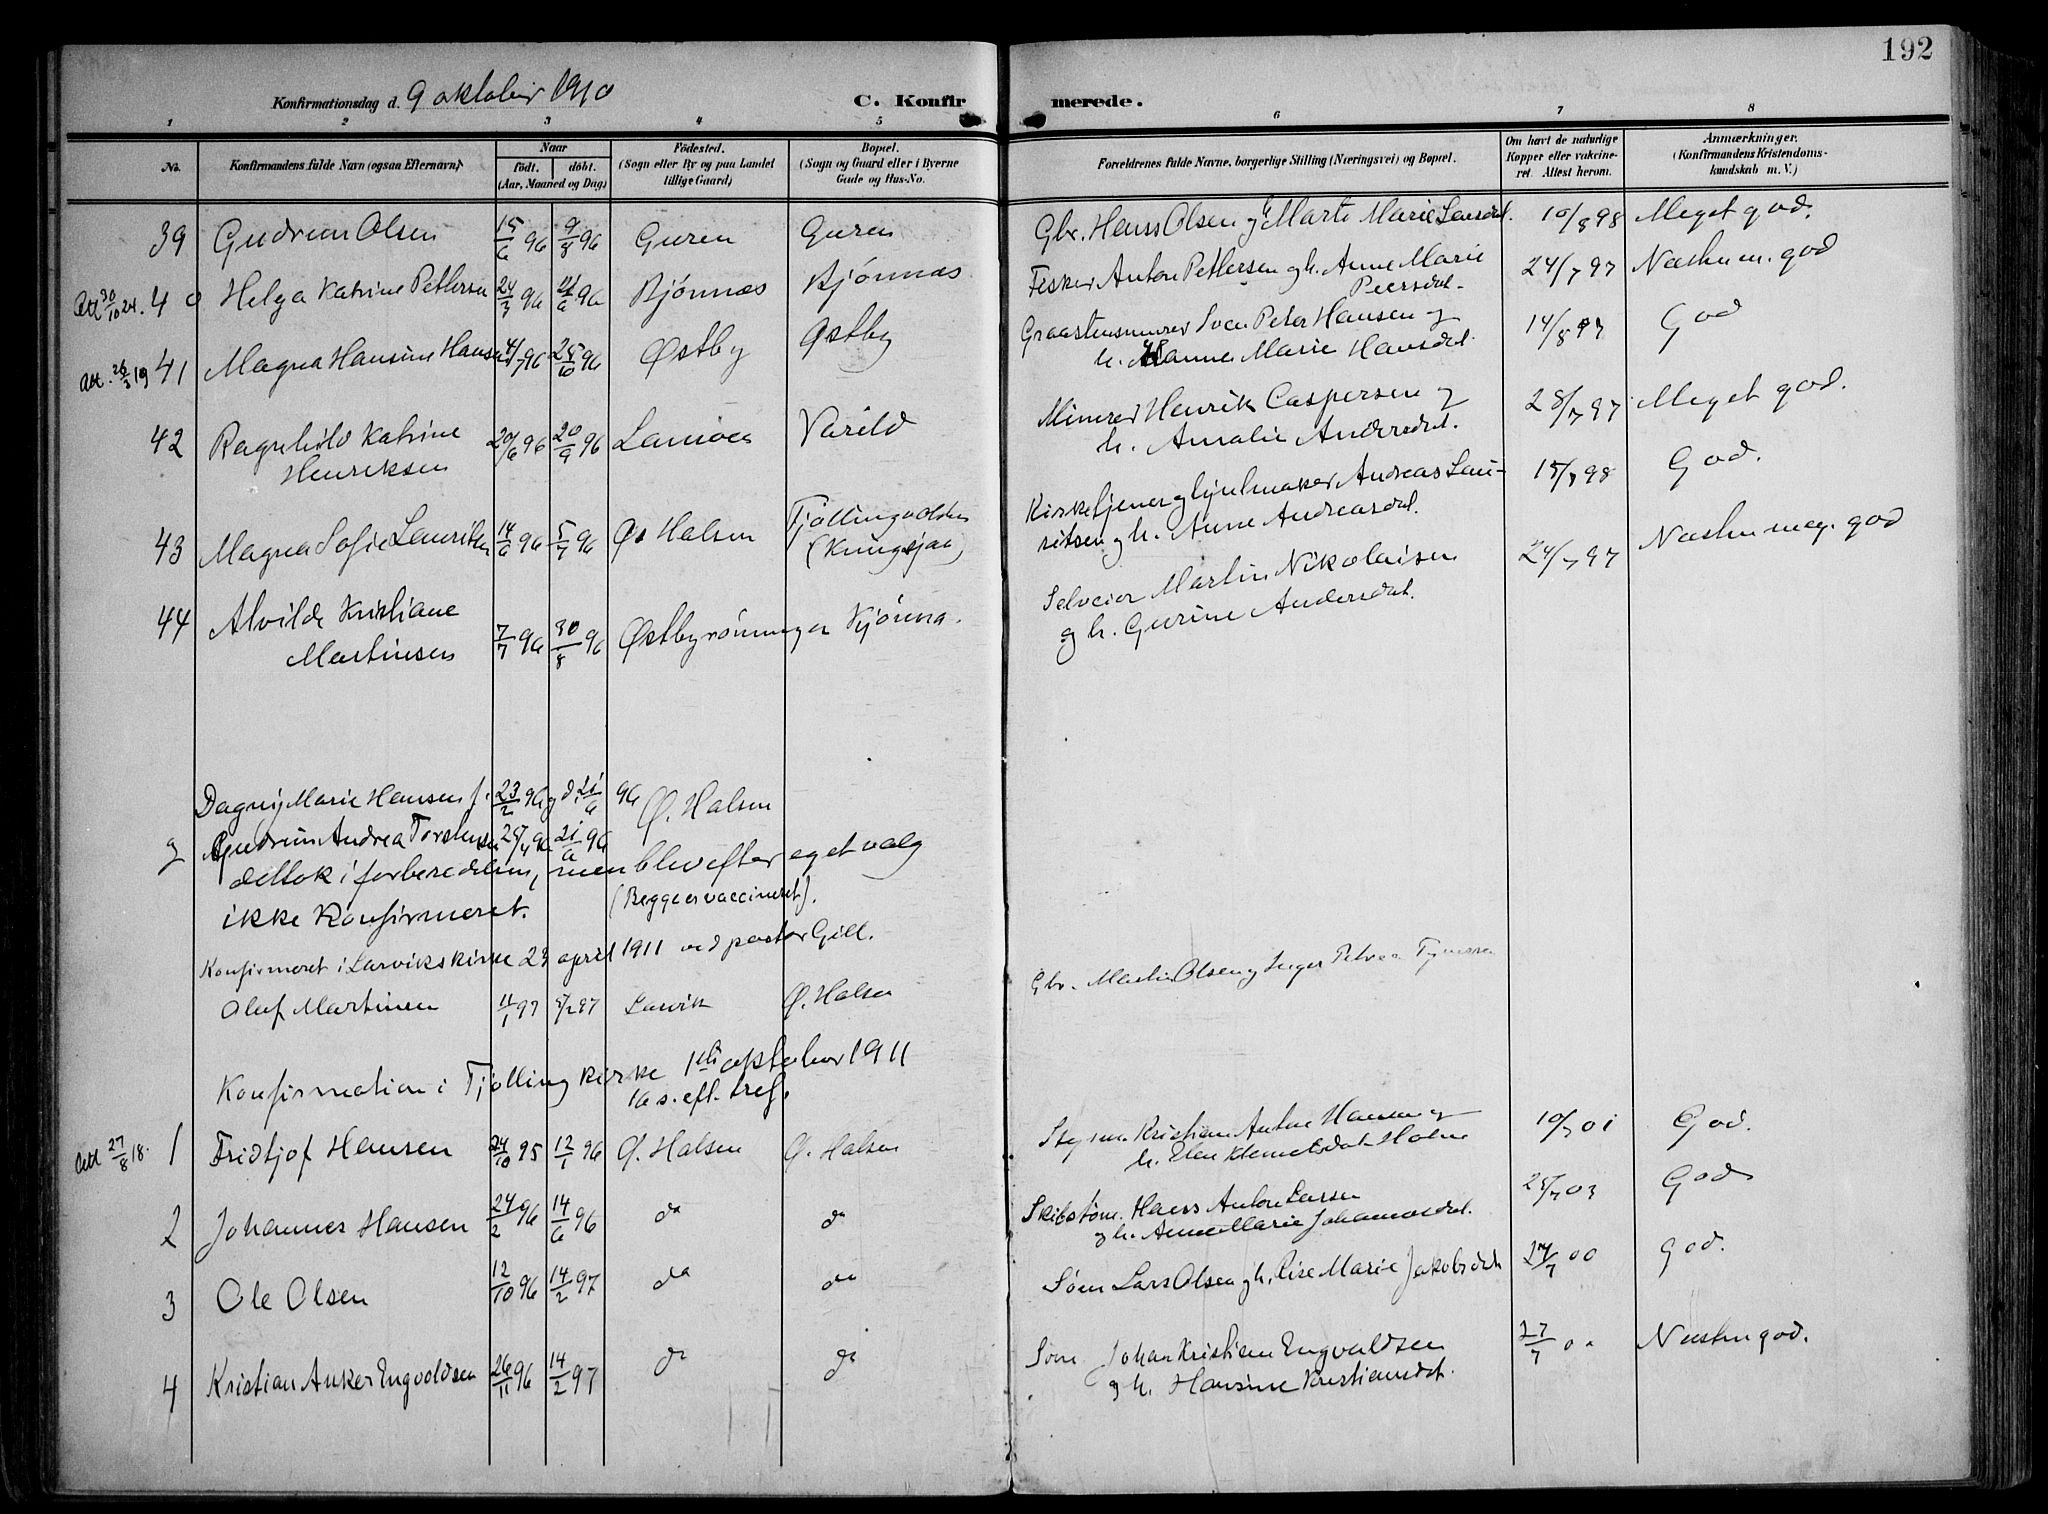 192
Konfirmationsdag d. 9 oktober 1910 C. Konfirmerede.
1 2 3 4 5 6 7 8
No. Konfirmandens fulde Navn (ogsaa Efternavn) Naar født. døbt. (Aar, Maaned og Dag) Fødested. (Sogn eller By og paa Landet tillige Gaard) Bopæl. (Sogn og Gaard eller i Byerne Gade og Hus-No. Forældrenes fulde Navne, borgerlige Stilling (Næringsvei) og Bopæl. Om havt de naturlige Kopper eller vakcineret. Attest herom. Anmærkninger. (Konfirmandens Kristendomskundskab m. V.)
39 Gudrun Olsen 15/6 96 9/8 96 Guren Guren Gbr. Hans Olsen og Marte Marie Larsdat. 10/8 98 Meget god.
Att 30/10 24. 40 Helga Katrine Pettersen 24/3 96 21/6 96 Bjönnæs Bjönnæs Fisker Anton Pettersen og h. Anne Marie
Peersdat. 24/7 97 Næsten m. god
Att. 26/3 19 41 Magna Hansine Hansen 4/7 96 25/10 96 Østby Østby Graastensmurer Sven Peter Hansen og
h. Hanne Marie Hansdat. 14/8 97 God
42 Ragnhild Katrine
Henriksen 20/6 96 20/9 96 Varild Minerer Henrik Caspersen og
h. Amalie Andersdat. 28/7 97 Meget god.
43 Magna Sofie Lauritsen 14/6 96 5/7 96 Ø. Halsen Tjøllingvolden
Kirketjener og hjulmaker Andreas Lau-
ritsen og h. Anne Andreasdat. 15/8 98 God.
44 Alvilde Kristiane
Martinsen 7/7 96 30/8 96 Østbyrönningen Kjönna. Selveier Martin Nikolaisen
og h. Gurine Andersdat. 24/7 97 Næsten meg. god
Dagny Marie Hansen f. 23/2 96 og d. 21/6 96 Ø. Halsen
og Gudrun Andrea Torstensen 25/4 96 21/6 96
deltok i forberedelsen, men blev efter eget valg
ikke konfirmeret. (Begge er vaccineret).
Konfirmeret i Larviks kirke 23 april 1911 ved pastor Gill.
Oluf Martinsen 11/1 97 5/2 97 Larvik Ø. Halsen Gbr. Martin Olsen og Inger Petrea
Konfirmation i Tjølling kirke 1ste oktober 1911
16 s. eft. tref.
Att 27/8 18. 1 Fridtjof Hansen 24/10 95 12/1 96 Ø. Halsen Ø. Halsen Styrm. Kristian Anton Hansen og
h. Elen Klemetsdat. Holm 10/7 01 God.
2 Johannes Hansen 24/2 96 14/6 96 do do Skibstøm. Hans Anton Larsen
og h. Anne Marie Johannesdat. 25/7 03 God
3 Ole Olsen 12/10 96 14/2 97 do do Søm Lars Olsen og h. Lise Marie Jakobsdat 24/7 00 God.
4 Kristian Anker Engvoldsen 26/11 96 14/2 97 do do Søm Johan Kristian Engvaldsen
og h. Hansine Kristiansdat. 27/7 00 Næsten god.